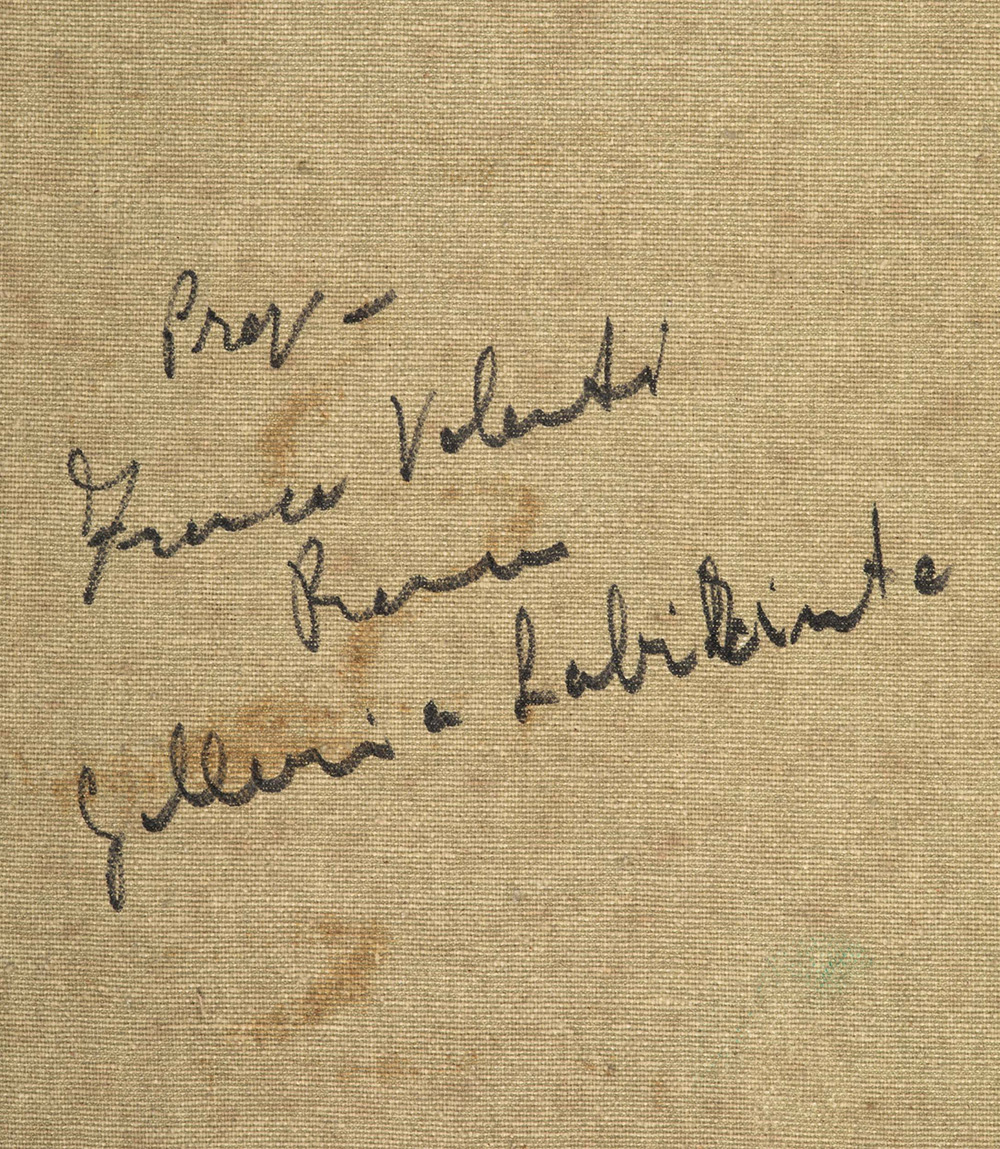 Prov-
Franco Valenti
Roma
Galleria Labirinto